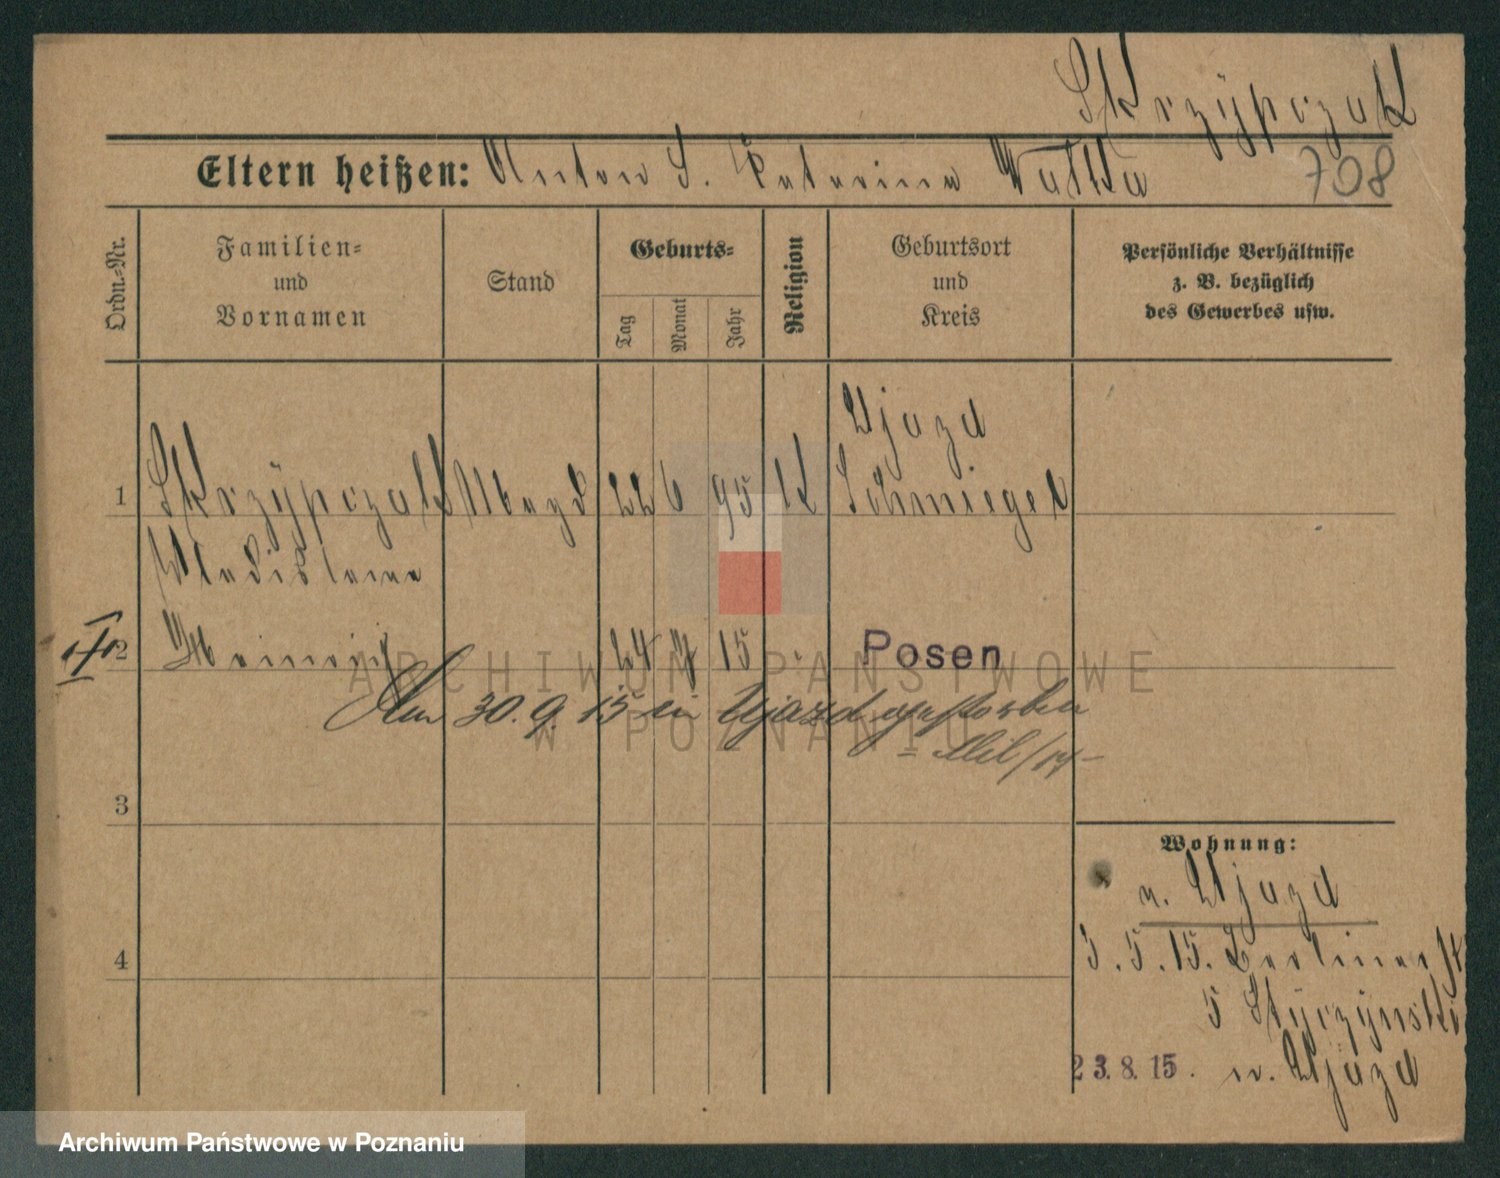 Skrzypczak
Eltern heißen: Anton S. Katarina Watta
708
Ordn.-Nr.
Familien-
und
Vornamen
Stand
Geburts-
Tag
Monat
Jahr
Religion
Geburtsort
und
Kreis
Persönliche Verhältnisse
z. B. bezüglich
des Gewerbes usw.
Ujazd
1 Skrzypczak Magd 22 6 95 K Schmiegel
Wladislawa
2 Heinrich 24 7 15 Posen
Am 30.9.15 in Ujazd gestorben
3
Wohnung:
v. Ujazd
3.5.15. Berliner St
4
5 Styczynski
23.8.15. n. Ujazd
ARCHIWUM PAŃSTWOWE
W POZNANIU
Archiwum Państwowe w Poznaniu